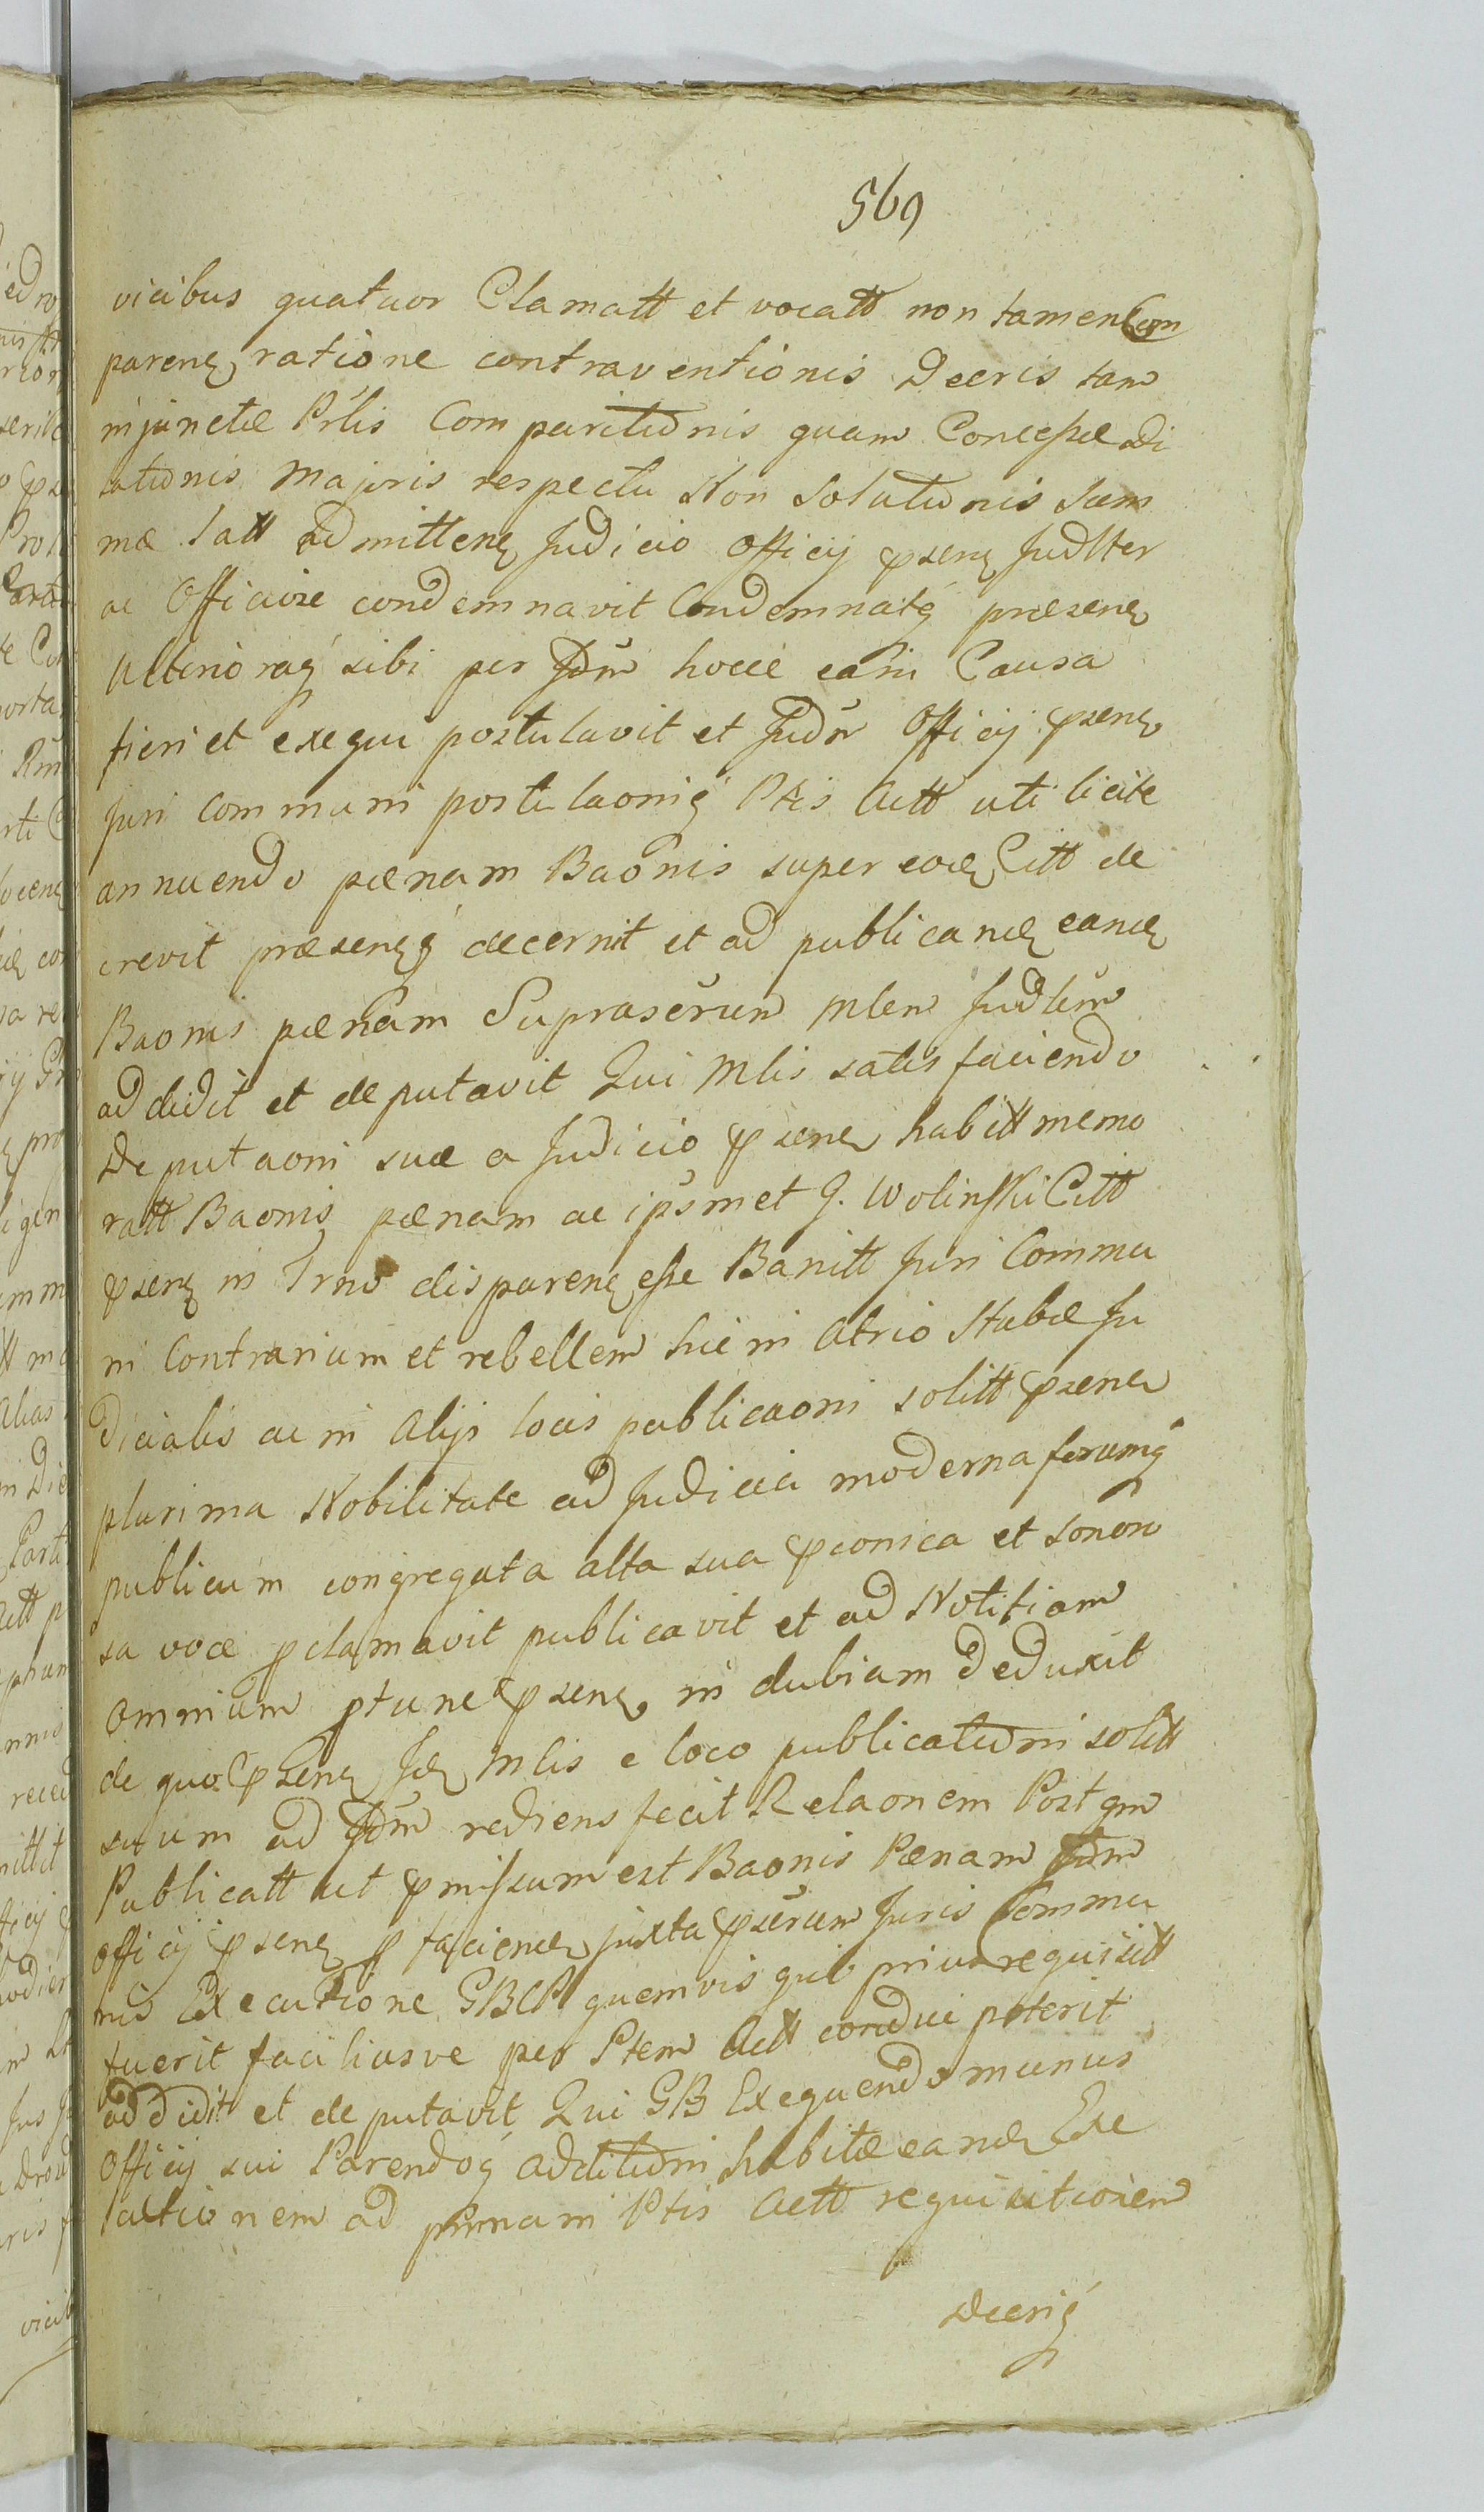 569
vicibus quatuor Clamatt et vocatt non tamen Com
parenꝫ ratione contraventionis Decris tam
injunctæ Prlis Comparitionis quam Concessæ Di
lationis Majoris respectu Non Solutionis Sum
mæ Latt admittenꝫ Judicio Officij pꝛsenꝫ Judlter
ac Officiose condemnavit Condemnatq præsenꝫ
Ulterioraq sibi per Jdm hocce eani Causa
fieri et exequi postulavit et Judm Officij pꝛsenꝫ
Juri Communi postulaoniq Ptis Actt uti licite
annuendo pænam Baonis super eodꝫ Citt de
crevit præsenꝫq decernit et ad publicandꝫ eandꝫ
Baonis pænam Suprascrum Mlem Judlem
addidit et deputavit Qui Mlis satisfaciendo
Deputaoni suæ a Judicio pꝛsenꝫ habitt memo
ratt Baonis pænam ac ipsmet G. Wolinski Citt
pꝛsenꝫ in Trno disparenꝫ esse Banitt Juri Commu
ni Contrarium et rebellem hic in Atrio Stubæ Ju
dicialis ac in Alijs locis publicaoni solitt pꝛsenꝫ
plurima Nobilitate ad Judicia moderna forumq
publicum congregata alta sua pconica et sonoro
sa voce pclamavit publicavit et ad Notitiam
Omnium ptunc pꝛsenꝫ indubiam deduxit
de quo pꝛsenꝫ Jdꝫ Mlis e loco publicationi solitt
suum ad Jdm rediens fecit Relaonem Post qm
Publicatt ut pmissum est Baonis Pænam Jdm
Officij pꝛsenꝫ p faciendꝫ juxta pscrum Juris Commu
nis Executione GBCP quemvis qui prius requisitt
fuerit faciliusve per Ptem Actt conduci poterit
addidit et deputavit Qui GB Exequendo munus
Officij sui Parendoq additioni habitæ eandꝫ Exe
cutionem ad primam Ptis Actt requisitionem
Decriq